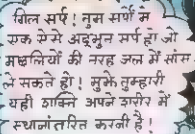 गिल सर्प! तुम सर्पों म
एक ऐसे अद्‌भुत सर्प हो जो
मछलियों की तरह जल में सांस
ले सकते हो! मुझे तुम्हारी
यही शक्ति अपने शरीर में
स्थानांतरित करनी है!